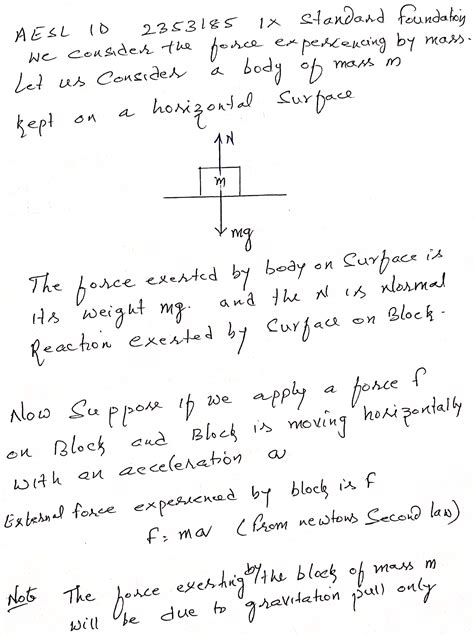 AESL ID 2353185 IX Standard Foundation
We consider the force experiencing by mass.
Let us Consider a body of mass m
kept on a horizontal Surface
N
m
mg
The force exerted by body on Surface is
its weight mg. and the N is Normal
Reaction exerted by Surface on Block.
Now Suppose if we apply a force f
on Block and Block is moving horizontally
with an acceleration a
External force experienced by block is f
f = ma (from newtons Second law)
Note The force exerting by the block of mass m
will be due to gravitation pull only